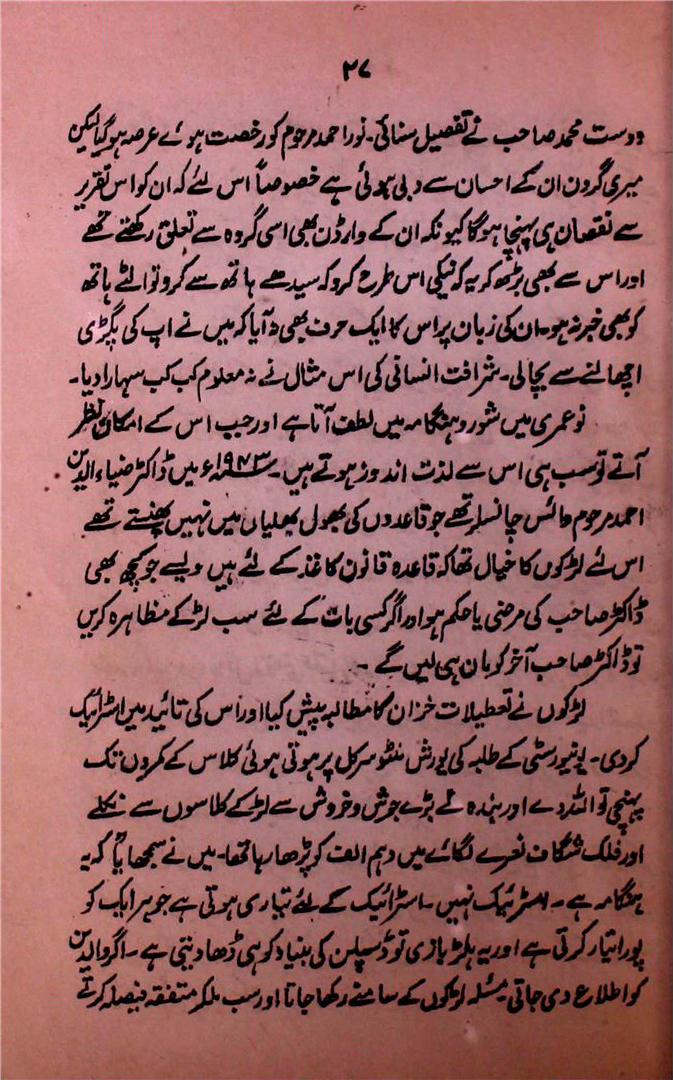 ۳۷
دوست محمد صاحب نے تفصیل سنائی۔ نور احمد مرحوم کو رخصت ہوئے عرصہ ہوگیا لیکن
میری گردن ان کے احسان سے دبی ہوئی ہے خصوصاً اس لئے کہ ان کو اس تقریر
سے نقصان ہی پہنچا ہوگا کیونکہ ان کے وارڈن بھی اسی گروہ سے تعلق رکھتے تھے
اور اس سے بھی بڑھ کر یہ کہ نیکی اس طرح کرو کہ سیدھے ہاتھ سے کرو تو الٹے ہاتھ
کو بھی خبر نہ ہو۔ ان کی زبان پر اس کا ایک حرف بھی نہ آیا کہ میں نے اپ کی پگڑی
اچھالنے سے بچالی۔ شرافت انسانی کی اس مثال نے نہ معلوم کب کب سہارا دیا۔
نوعمری میں شور و ہنگامہ میں لطف آتا ہے اور جب اس کے امکان نظر
آتے تو سب ہی اس سے لذت اندوز ہوتے ہیں۔ ۱۹۴۳ء میں ڈاکٹر ضیاء الدین
احمد مرحوم وائس چانسلر تھے جو قاعدوں کی بھول بھلیاں میں نہیں پھنستے تھے
اس لئے لڑکوں کا خیال تھا کہ قاعدہ قانون کاغذ کے لئے ہیں ویسے جو کچھ بھی
ڈاکٹر صاحب کی مرضی یا حکم ہو اور اگر کسی بات کے لئے سب لڑکے مظاہرہ کریں
تو ڈاکٹر صاحب آخر کو مان ہی لیں گے۔
لڑکوں نے تعطیلات خزاں کا مطالبہ پیش کیا اور اس کی تائید میں اسٹرائیک
کردی۔ یونیورسٹی کے طلبہ کی یورش منٹو سرکل پر ہوتی ہوئی کلاس کے کمروں تک
پہنچی تو اللہ دے اور بندہ لے بڑے جوش و خروش سے لڑکے کلاسوں سے نکلے
اور فلک شگاف نعرے لگائے میں دہم الف کو پڑھا رہا تھا۔ میں نے سمجھایا کہ یہ
ہنگامہ ہے۔ اسٹرئیک نہیں۔ اسٹرائیک کے لئے تیاری ہوتی ہے جو ہر ایک کو
پورا تیار کرتی ہے اور یہ ہلڑ بازی تو ڈسپلن کی بنیاد کو ہی ڈھا دیتی ہے۔ اگر والدین
کو اطلاع دی جاتی مسئلہ لڑکوں کے سامنے رکھا جاتا اور سب ملکر متفقہ فیصلہ کرتے